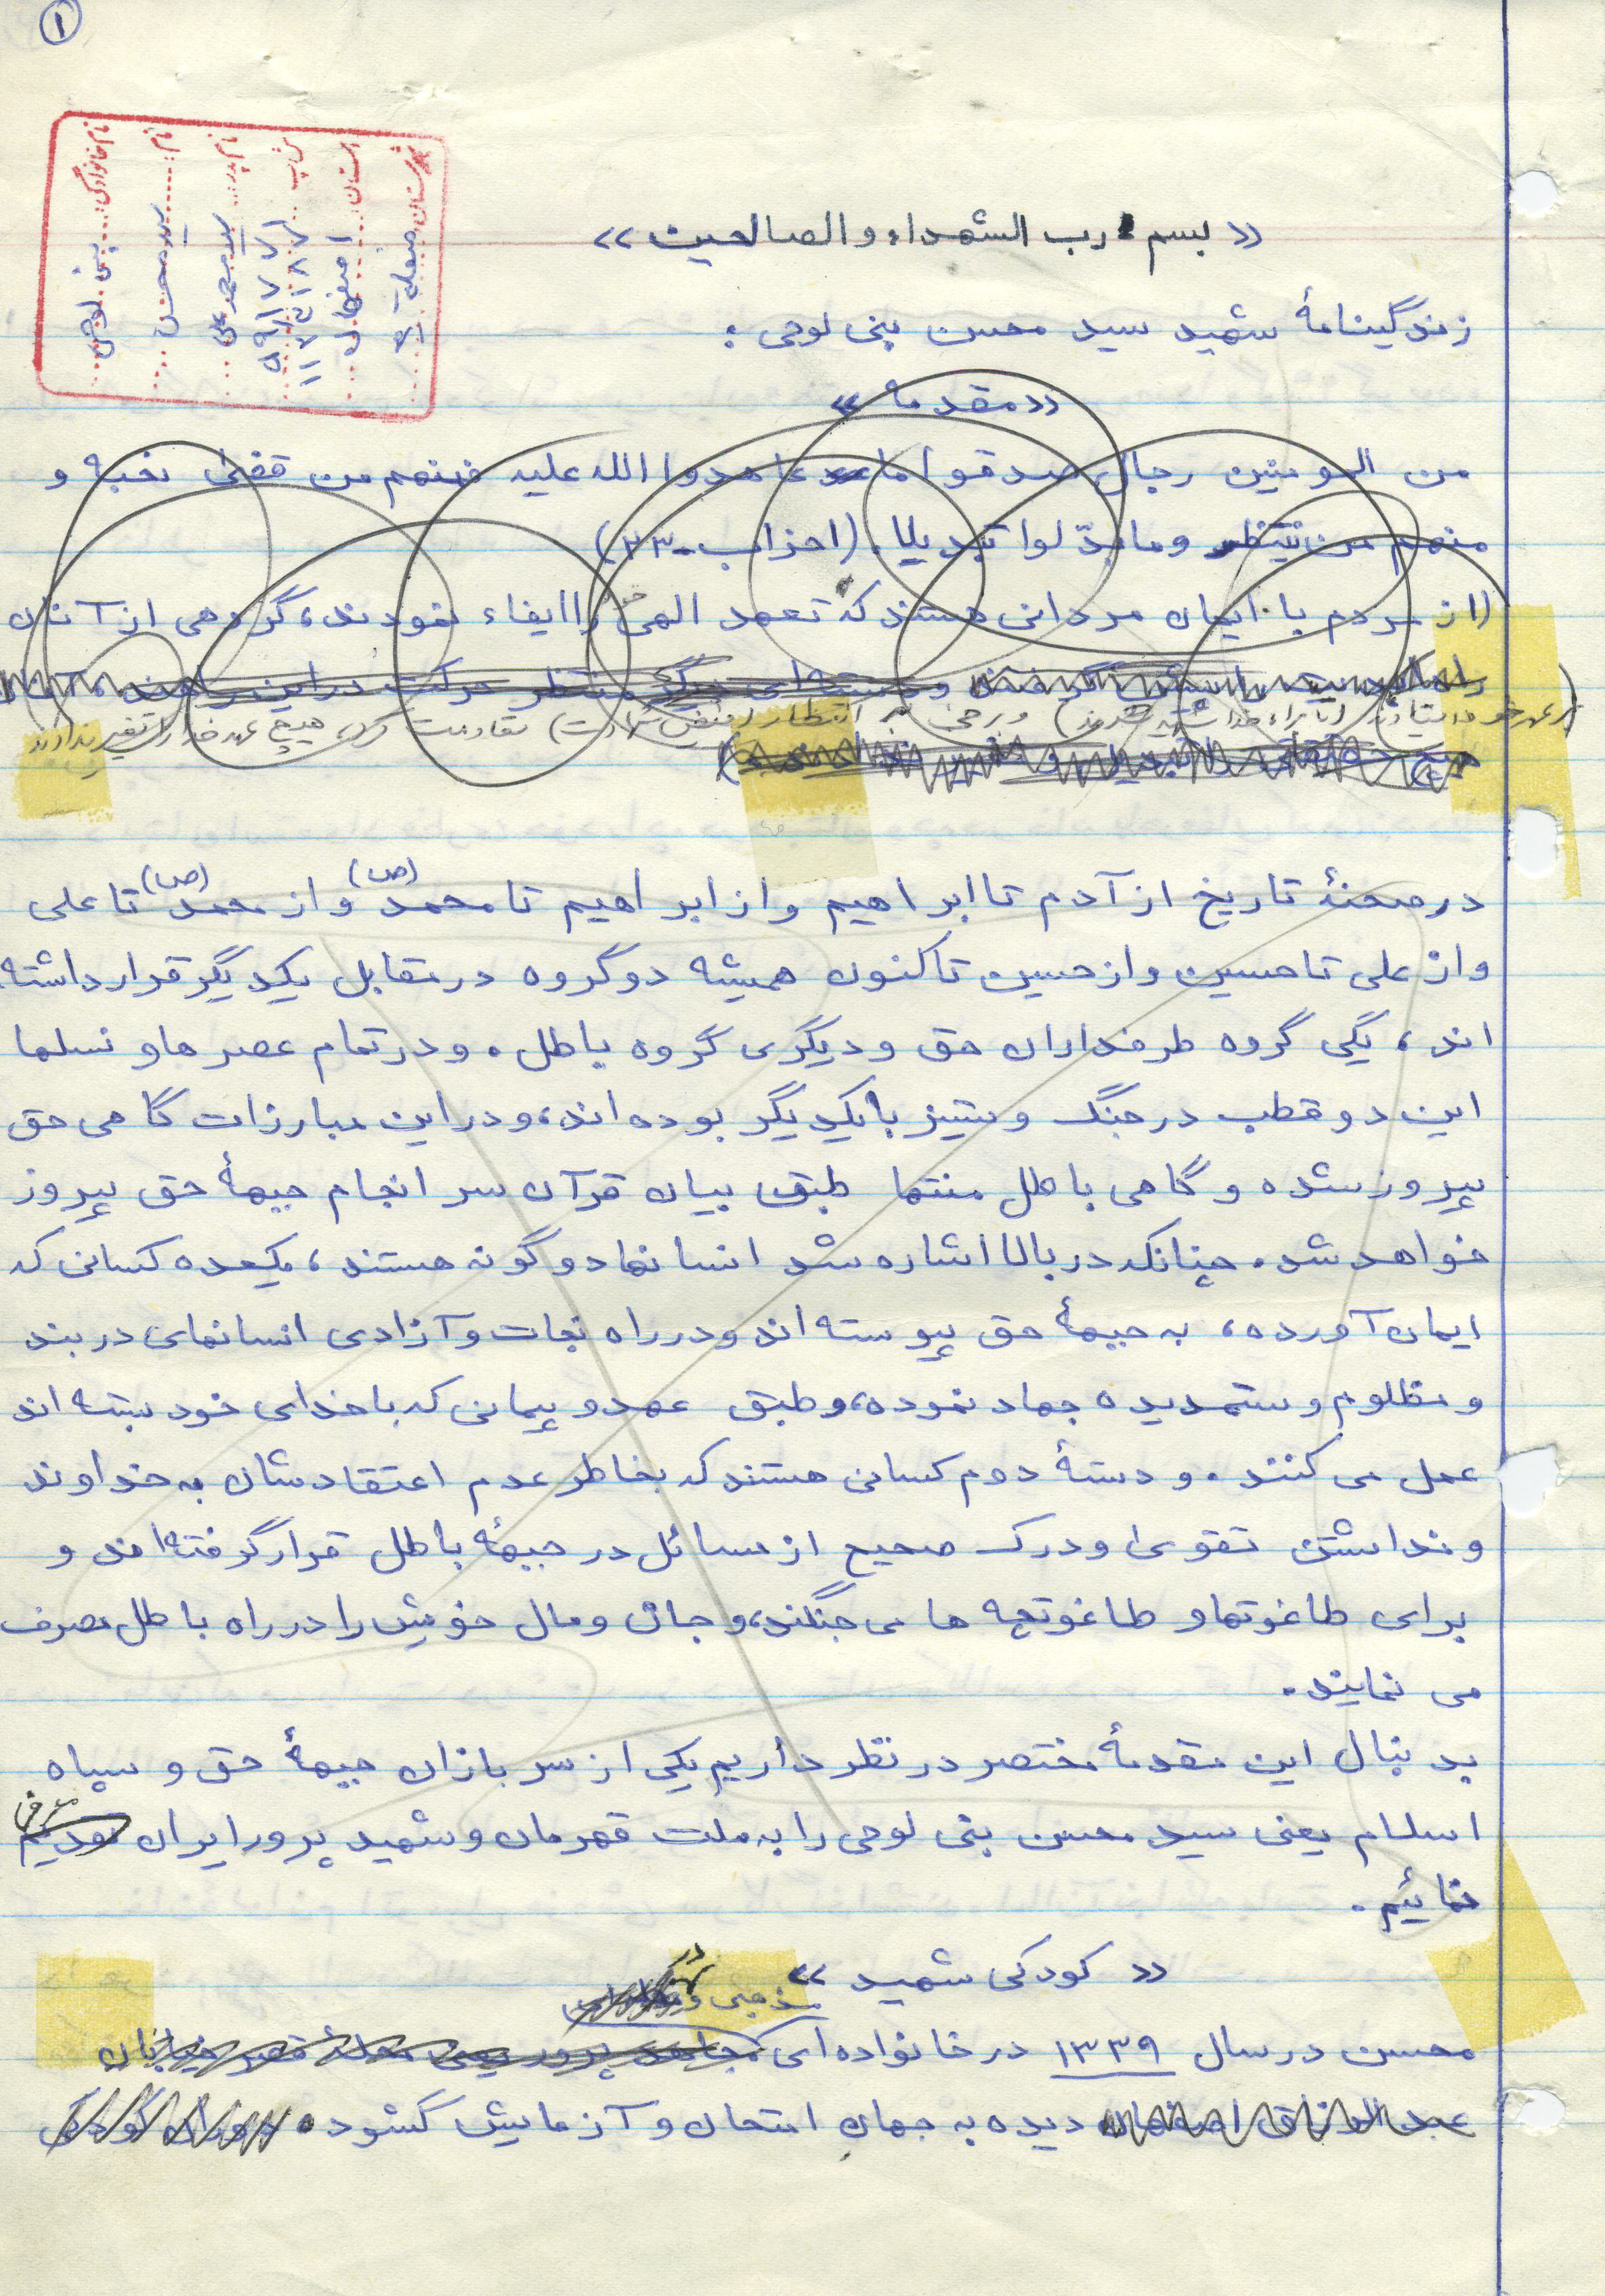 ۱
نام خانوادگی: بنی لوحی
نام: سید محسن
نام پدر: سید محمد علی
ش پ
استان: اصفهان
شهرستان:
« بسم رب الشهداء و الصالحین »
زندگینامهٔ شهید سید محسن بنی لوحی :
« مقدمه »
من المومنین رجال صدقوا ما عاهدوا الله علیه فمنهم من قضیٰ نحبه و
منهم من ینتظر و ما بدّلوا تبدیلا . (احزاب - ۲۳)
(از مردم با ایمان مردانی هستند که تعهد الهی را ایفاء نمودند، گروهی از آنان
بر عهد خود ایستادند (تا براه خدا شهید شدند) و برخی به انتظار (فیض شهادت) مقاومت کرده هیچ عهد خدا را تغییر ندادند
در صحنهٔ تاریخ از آدم تا ابراهیم و از ابراهیم تا محمد (ص) و از محمد (ص) تا علی
و از علی تا حسین و از حسین تاکنون همیشه دو گروه در مقابل یکدیگر قرار داشته
اند، یکی گروه طرفداران حق و دیگری گروه باطل . و در تمام عصرها و نسلها
این دو قطب در جنگ و ستیز با یکدیگر بوده اند، و در این مبارزات گاهی حق
پیروز شده و گاهی باطل منتها طبق بیان قرآن سر انجام جبههٔ حق پیروز
خواهد شد . چنانکه در بالا اشاره شد انسانها دو گونه هستند، یکعده کسانی که
ایمان آورده، به جبههٔ حق پیوسته اند و در راه نجات و آزادی انسانهای در بند
و مظلوم و ستمدیده جهاد نموده، و طبق عهد و پیمانی که با خدای خود بسته اند
عمل می کنند . و دستهٔ دوم کسانی هستند که بخاطر عدم اعتقادشان به خداوند
و نداشتن تقویٰ و درک صحیح از مسائل در جبههٔ باطل قرار گرفته اند و
برای طاغوتها و طاغوتچه ها می جنگند، و جان و مال خویش را در راه باطل مصرف
می نمایند .
بدنبال این مقدمهٔ مختصر در نظر داریم یکی از سربازان جبههٔ حق و سپاه
اسلام یعنی سید محسن بنی لوحی را به ملت قهرمان و شهید پرور ایران معرفی
نمائیم .
« کودکی شهید »
مذهبی در
محسن در سال ۱۳۳۹ در خانواده ای
دیده به جهان امتحان و آزمایش گشود .